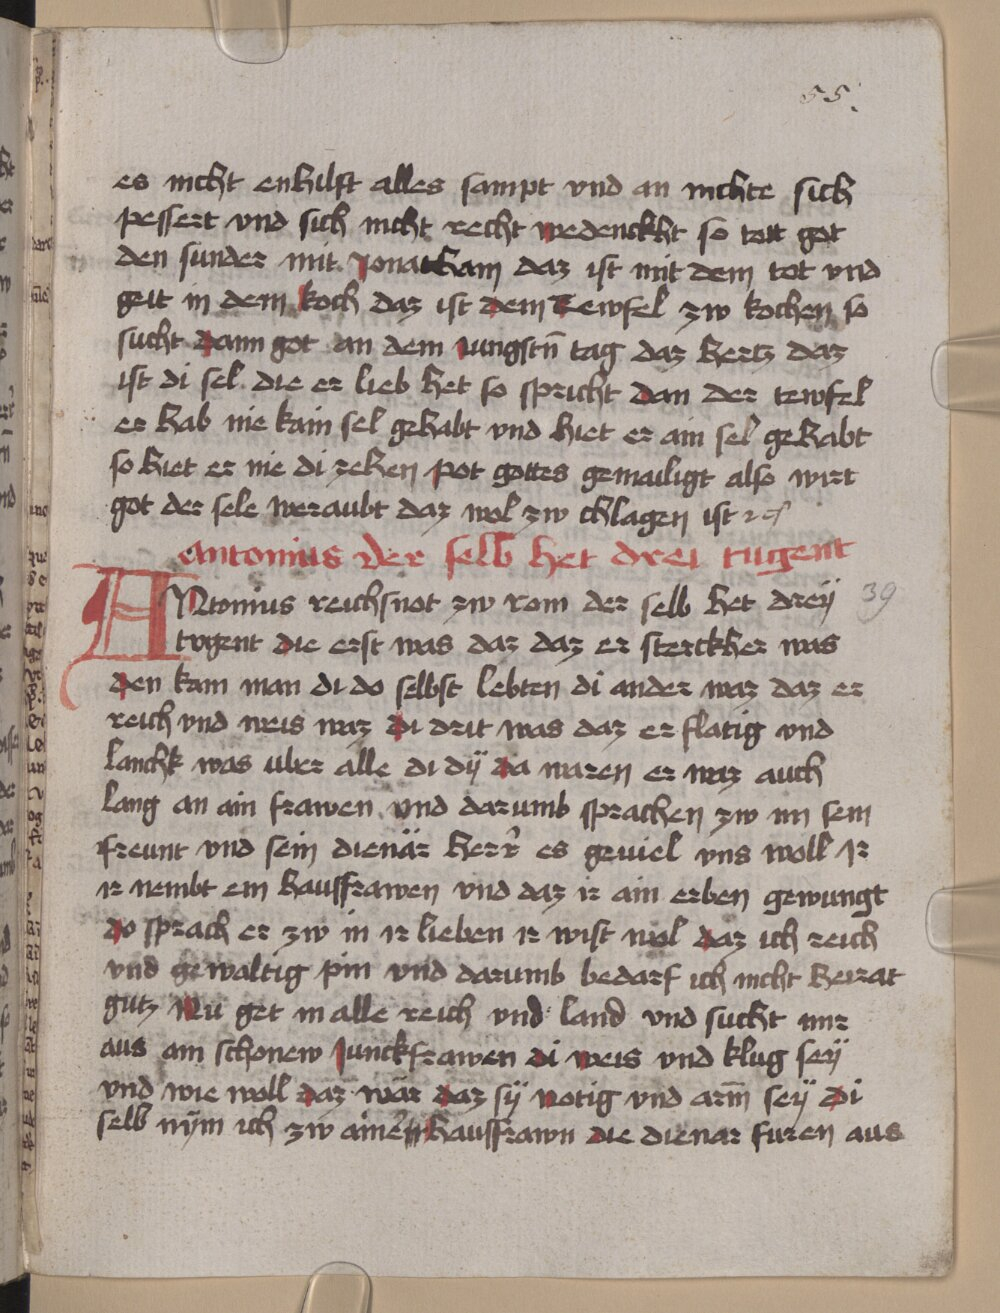 55.
es nicht enhilft alles sampt vnd an nichte sich
pessert vnd sich nicht recht wedenckht so tott got
den sunder mit Jonatham daz ist mit dem tot vnd
geit in dem koch daz ist dem Tewfel zw kochen so
sucht dann got an dem iungstn̄ tag daz hertz daz
ist di sel die er lieb het so spricht dan der tewfel
er hab nie kain sel gehabt vnd hiet er ain sel gehabt
so hiet er nie di zehen pot gottes gemailigt also wirt
got der sele weraubt daz wol zw chlagen ist
Antonius der selb het drei tugent
ANtonius reichsnot zw rom der selb het dreÿ
39
tvgent die erst was daz daz er sterckher was
den kain man di do selbst lebten di ander waz daz er
reich vnd weis waz di drit was daz er flatig vnd
lanckh was vber alle di dÿ da waren er waz auch
lang an ain frawen vnd darumb sprachen zw im sein
freunt vnd sein dienär herr es geuiel vns woll Ir
ir nembt ein hausfrawen vnd daz ir ain erben gewungt
do sprach er zw in ir lieben ir wist wol daz ich reich
vnd gewaltig pin vnd darumb bedarf ich nicht heirat
gutz Nu get in alle reich vnd land vnd sucht mir
aus ain schonew Junckfrawen di weis vnd klug seÿ
vnd wie woll daz wär daz sÿ notig vnd arm̄ seÿ di
selb nÿm ich zw ainer hausfrawn die dienar furen aus